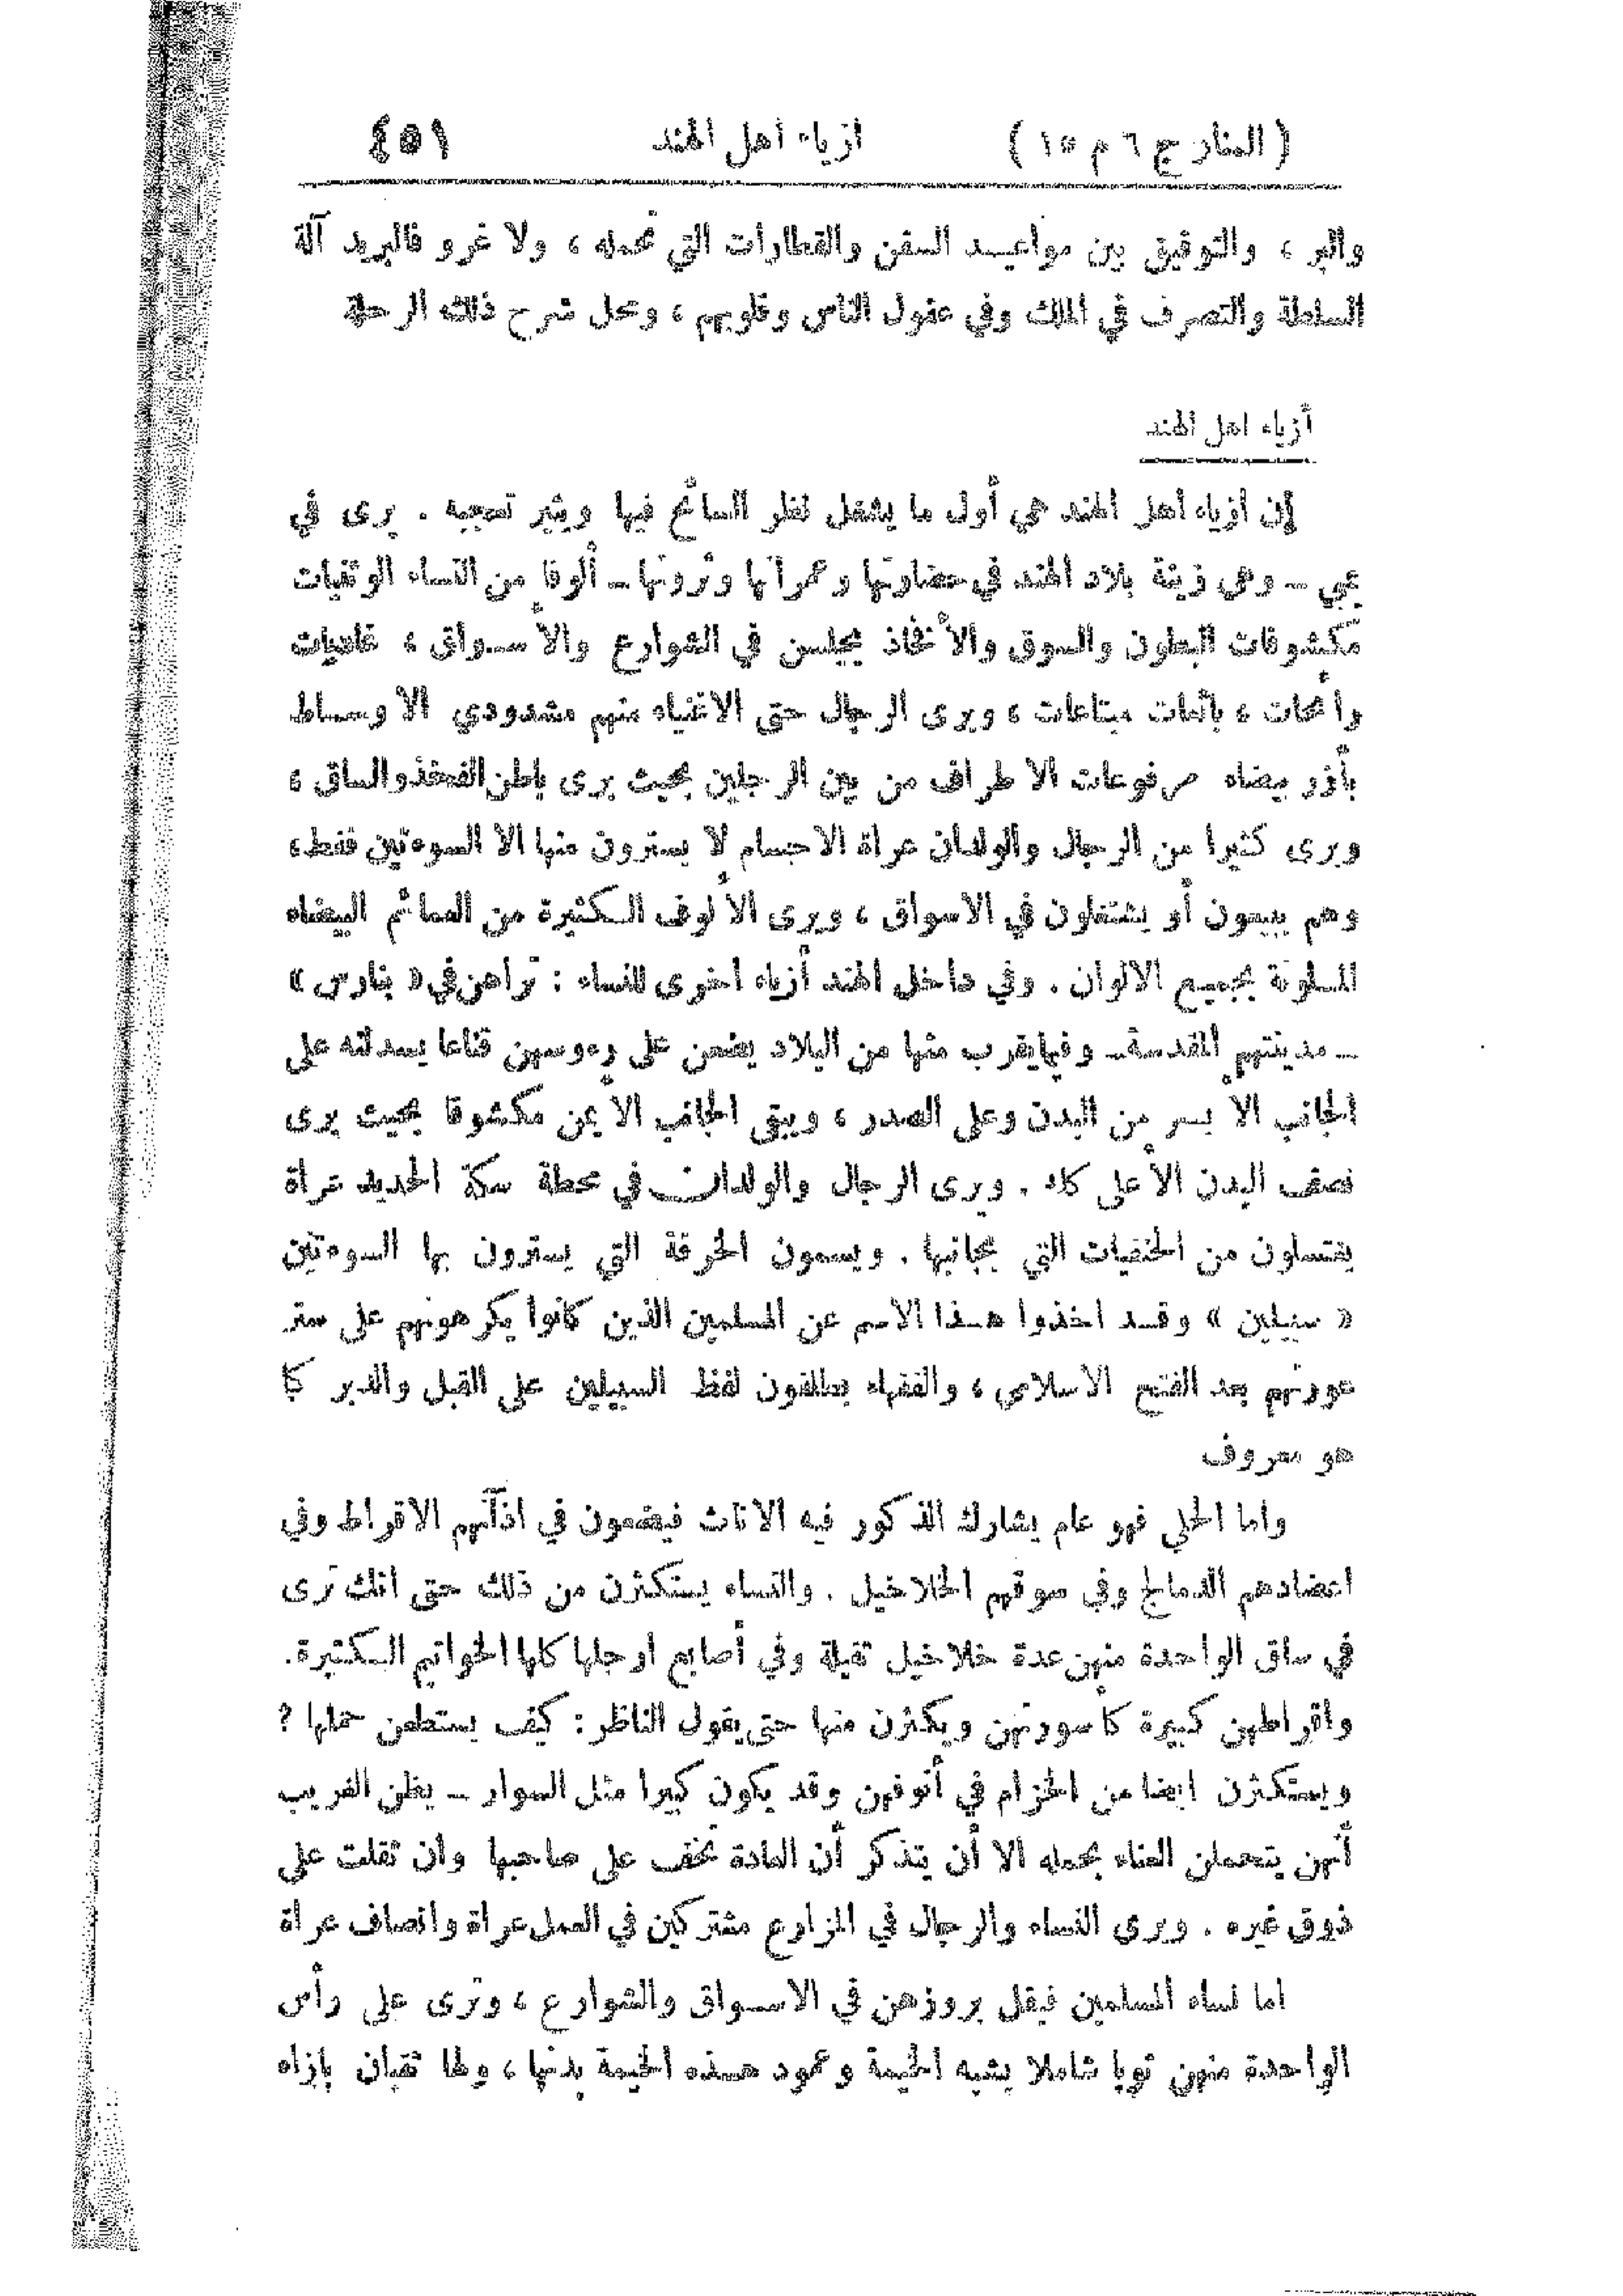 ( المنار ج ٦ م ١٥ ) ازياء اهل الهند ٤٥١
والبر ، والتوفيق بين مواعيد السفن والقطارات التي تحمله ، ولا غرو فالبريد آلة
السلطة والتصرف في الملك وفي عقول الناس وقلوبهم ، ومحل شرح ذلك الرحلة
أزياء اهل الهند
إن ازياء اهل الهند هي أول ما يشغل نظر السائح فيها ويثير تعجبه . يرى في
بمبي ــ وهي زينة بلاد الهند في حضارتها وعمرانها وثروتها ــ ألوفا من النساء الوثنيات
مكشوفات البطون والسوق والأفخاذ يجلسن في الشوارع والأسواق ، غاديات
رائحات ، بائعات مبتاعات ، ويرى الرجال حتى الاغنياء منهم مشدودي الاوساط
بأزر بيضاء مرفوعات الاطراف من بين الرجلين بحيث يرى باطن الفخذ والساق ،
ويرى كثيرا من الرجال والولدان عراة الاجسام لا يسترون منها الا السوءتين فقط ،
وهم يبيعون أو يشتغلون في الاسواق ، ويرى الألوف الكثيرة من العمائم البيضاء
الملونة بجميع الالوان . وفي داخل الهند أزياء اخرى للنساء : تراهن في « بنارس »
ــ مدينتهم المقدسة ــ وفيما يقرب منها من البلاد يضعن على رءوسهن قناعا يسدلنه على
الجانب الأيسر من البدن وعلى الصدر ، ويبقى الجانب الأيمن مكشوفا بحيث يرى
نصف البدن الأعلى كله . ويرى الرجال والولدان في محطة سكة الحديد عراة
يغتسلون من الحنفيات التي بجانبها . ويسمون الخرقة التي يسترون بها السوءتين
« سبيلين » وقد اخذوا هذا الاسم عن المسلمين الذين كانوا يكرهونهم على ستر
عورتهم بعد الفتح الاسلامي ، والفقهاء يطلقون لفظ السبيلين على القبل والدبر كما
هو معروف
واما الحلي فهو عام يشارك الذكور فيه الاناث فيضعون في اذآنهم الاقراط وفي
اعضادهم الدمالج وفي سوقهم الخلاخيل . والنساء يستكثرن من ذلك حتى انك ترى
في ساق الواحدة منهن عدة خلاخيل ثقيلة وفي أصابع ارجلها كلها الخواتيم الكثيرة .
واقراطهن كبيرة كاسورتهن ويكثرن منها حتى يقول الناظر : كيف يستطعن حملها ؟
ويستكثرن ايضا من الخزام في أنوفهن وقد يكون كبيرا مثل السوار ــ يظن الغريب
أنهن يتحملن العناء بحمله الا أن يتذكر أن العادة تخف على صاحبها وان ثقلت على
ذوق غيره . ويرى النساء والرجال في المزارع مشتركين في العمل عراة وانصاف عراة
اما نساء المسلمين فيقل بروزهن في الاسواق والشوارع ، وترى على رأس
الواحدة منهن ثوبا شاملا يشبه الخيمة وعمود هذه الخيمة بدنها ، ولها ثقبان بإزاء